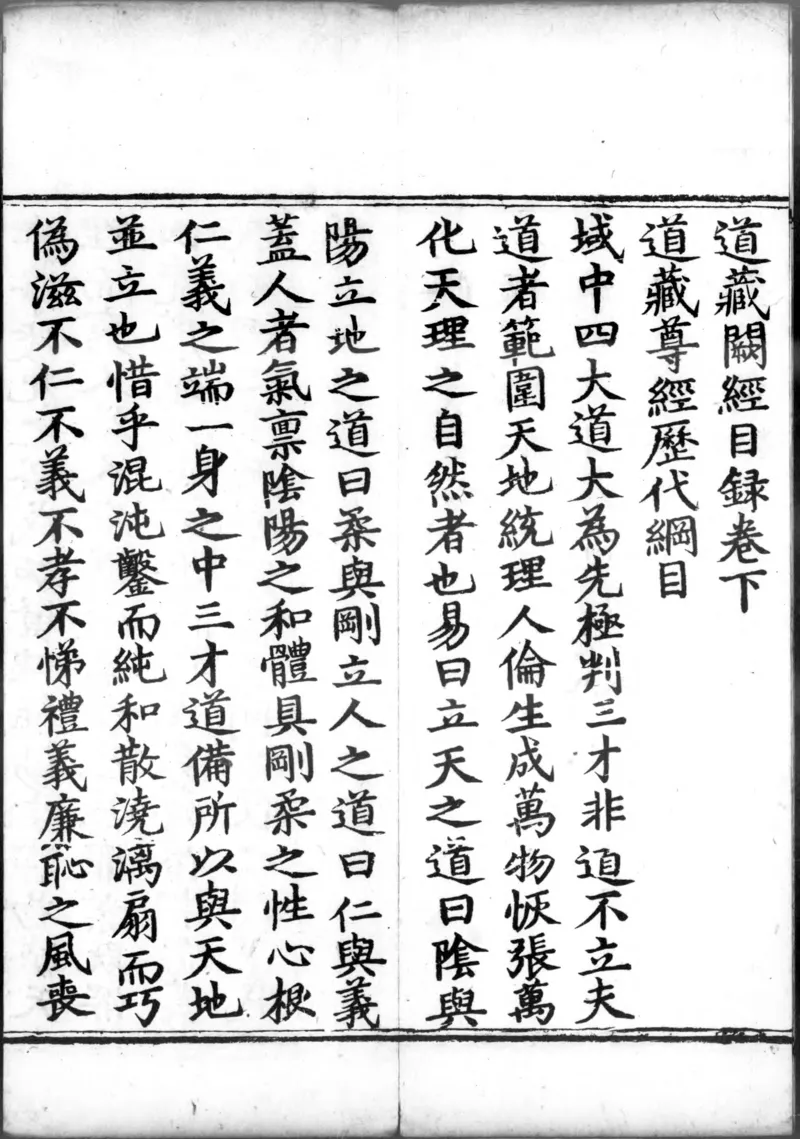 道藏闕經目録卷下
道藏尊經歷代綱目
域中四大道大為先極判三才非道不立夫
道者範圍天地統理人倫生成萬物恢張萬
化天理之自然者也易曰立天之道曰陰與
陽立地之道曰柔與剛立人之道曰仁與義
蓋人者氣禀陰陽之和體具剛柔之性心根
仁義之端一身之中三才道備所以與天地
並立也惜乎混沌鑿而純和散澆漓扇而巧
偽滋不仁不義不孝不悌禮義廉恥之風喪